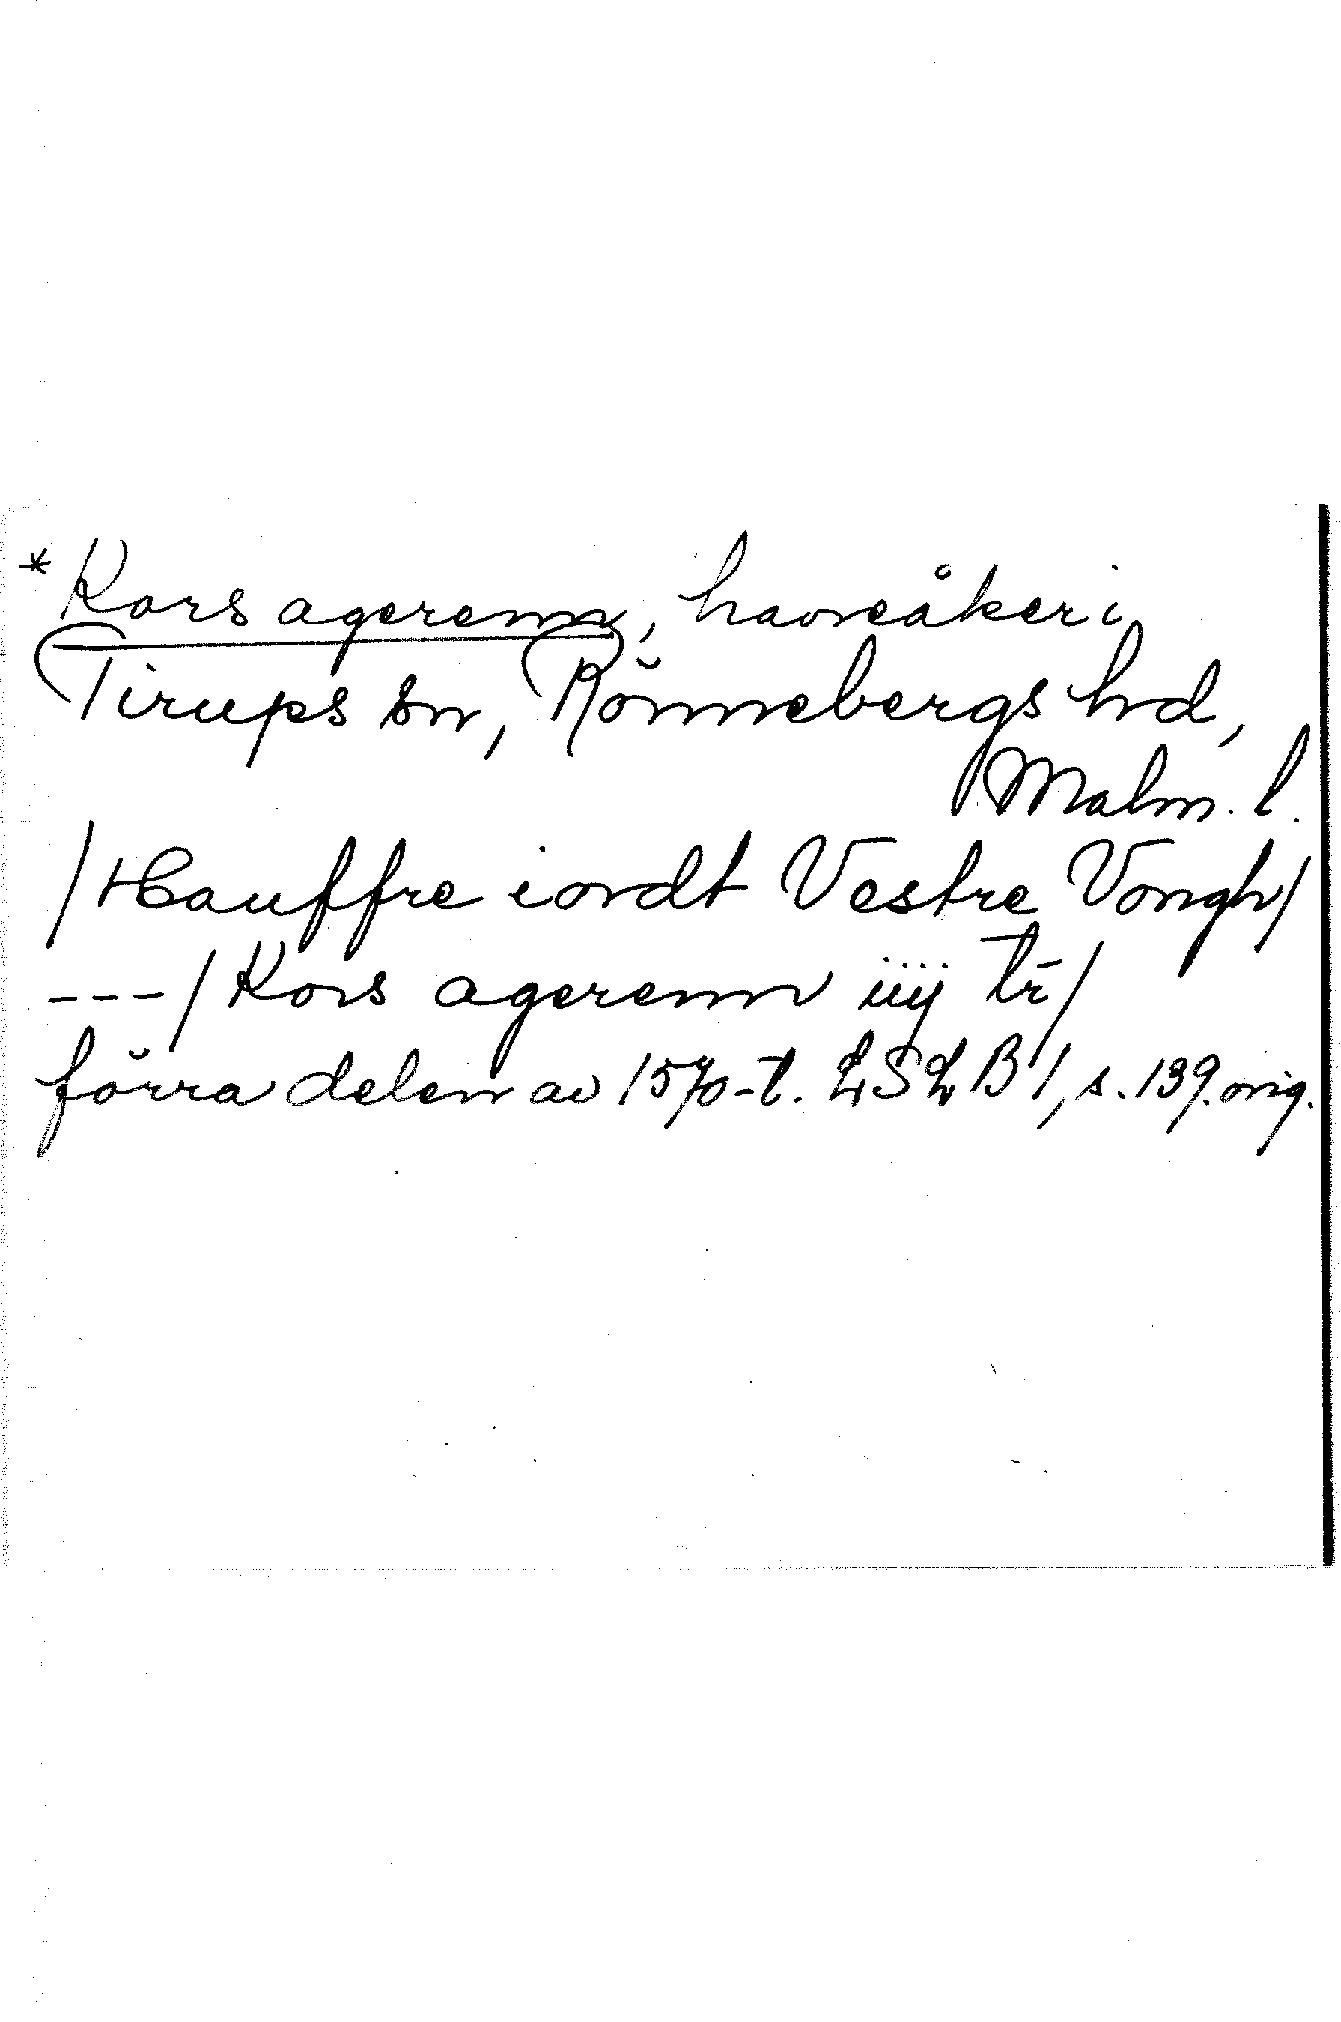 * Kors agerenn, havreåker i
Tirups sn, Rönnebergs hd,
Malm. l.
/Hauffre iordt Vestre Vongh/
---/Kors agerenn iiij tr̄/
förra delen av 1570-t. LSLB 1, s. 139. orig.